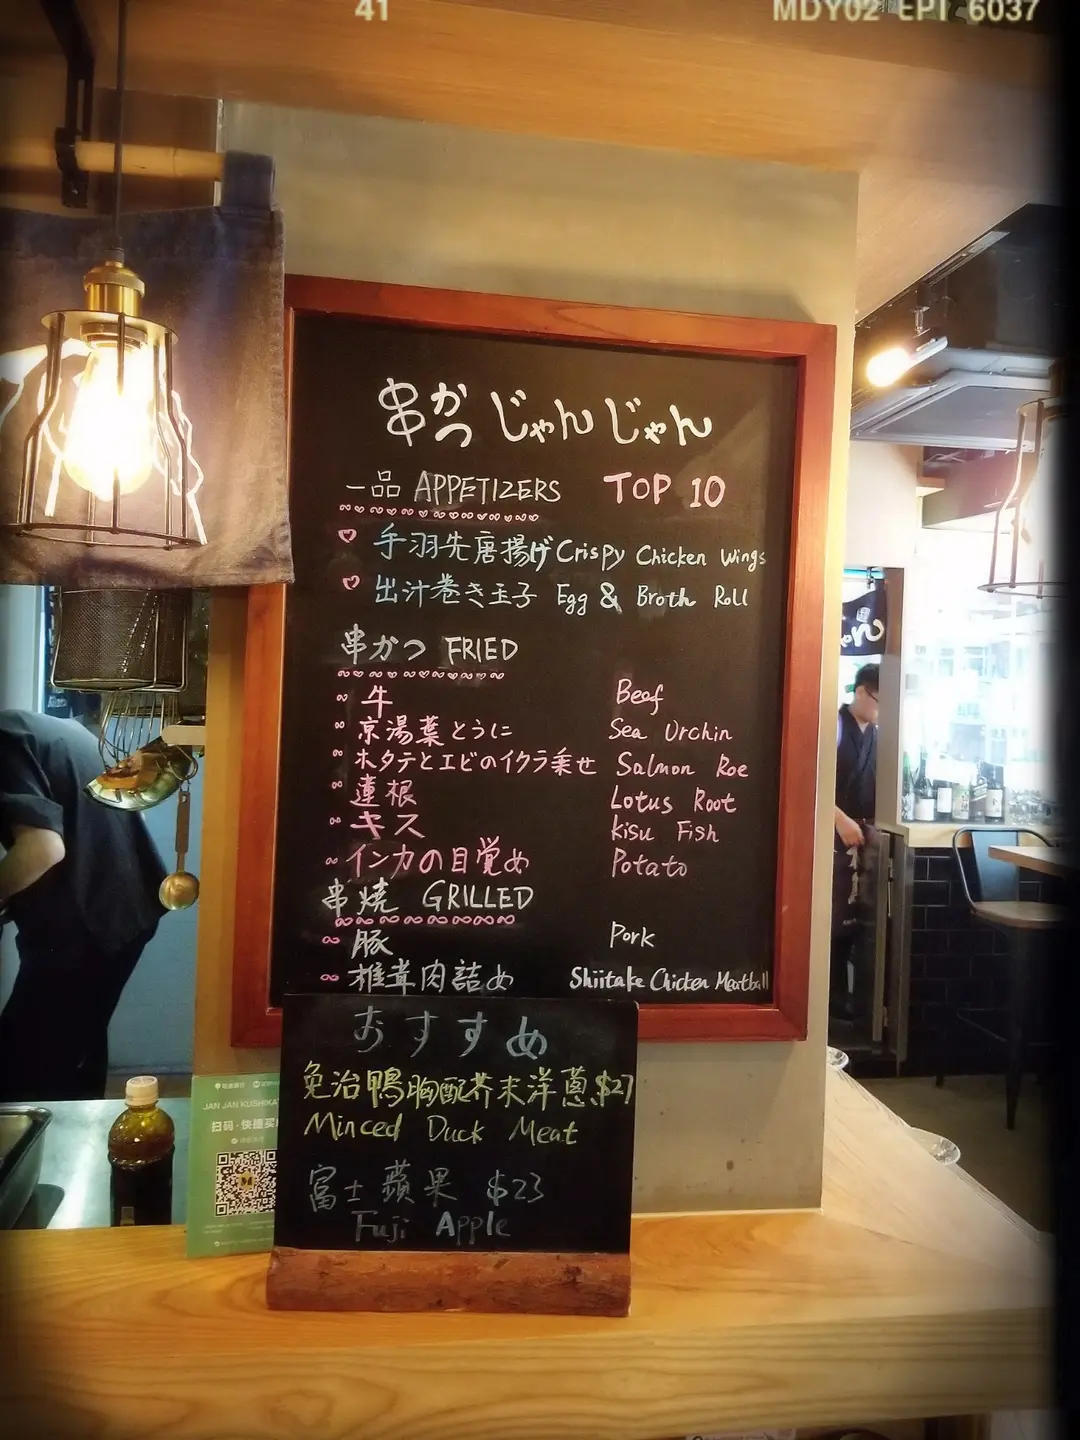 41 MDY02 EPI 6037
串かつ じゃんじゃん
一品 APPETIZERS TOP 10
手羽先唐揚げ Crispy Chicken Wings
出汁巻き玉子 Egg & Broth Roll
串かつ FRIED
牛 Beef
京湯葉とうに Sea Urchin
ホタテとエビのイクラ乗せ Salmon Roe
蓮根 Lotus Root
キス Kisu Fish
インカの目覚め Potato
串焼 GRILLED
豚 Pork
椎茸肉詰め Shiitake Chicken Meatball
おすすめ
免治鴨胸配芥末洋蔥 $27
Minced Duck Meat
富士蘋果 $23
Fuji Apple
JAN JAN KUSHIKA
扫码·快捷买